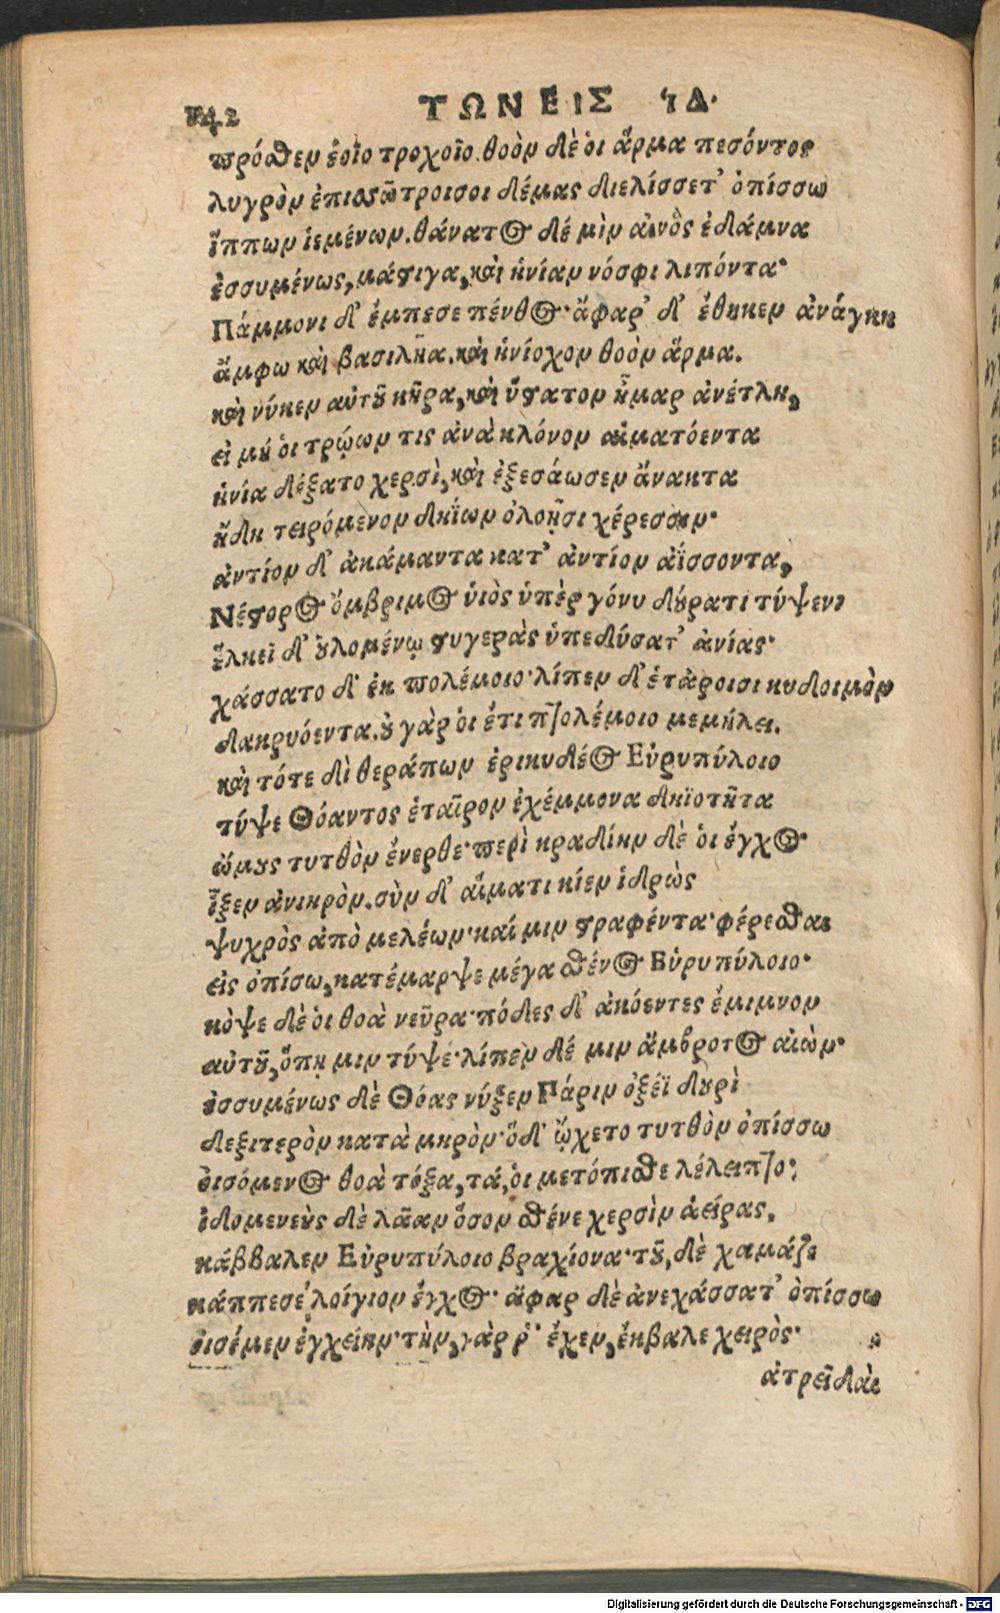 142 ΤΩΝ ΕΙΣ ἸΔ.
πρόσθεν ἑοῖο τροχοῖο. θοὸν δὲ οἱ ἅρμα πεσόντος
λυγρὸν ἐπισσῶτροισοι δέμας διελίσσετ' ὀπίσσω
ἵππων ἱεμένων. θάνατος δέ μὶν αἰνὸς ἐδάμνα
ἐσσυμένως, μάστιγα, καὶ ἡνίαν νόσφι λιπόντα·
Πάμμονι δ' ἔμπεσε πένθος· ἄφαρ δ' ἔθηκεν ἀνάγκη
ἄμφω καὶ βασιλῆα. καὶ ἡνίοχον θοὸν ἅρμα.
καὶ νύκεν αὐτοῦ κῆρα, καὶ ὕστατον ἦμαρ ἀνέτλη,
εἰ μή οἱ τρῴων τις ἀνὰ κλόνον αἱματόεντα
ἡνία δέξατο χερσὶ, καὶ ἐξεσάωσεν ἄνακτα
ἤδη τειρόμενον δηΐων ὀλοῇσι χέρεσσιν·
ἀντίον δ' ἀκάμαντα κατ' ἀντίον ἀΐσσοντα,
Νέστορος ὄμβριμος ὑιὸς ὑπὲρ γόνυ δούρατι τύψεν,
ἕλκεϊ δ' οὐλομένῳ στυγερὰς ὑπεδύσατ' ἀνίας·
χάσσατο δ' ἐκ πολέμοιο· λίπεν δ' ἑτάροισι κυδοιμὸν
δακρυόεντα. οὐ γὰρ οἱ ἔτι πτολέμοιο μεμήλει.
καὶ τότε δὶ θεράπων ἐρικυδέος Εὐρυπύλοιο
τύψε Θόαντος ἑταῖρον ἐχέμμονα δηϊοτῆτα
ὤμους τυτθὸν ἔνερθε· περὶ κραδίην δὲ οἱ ἔγχος
ἷξεν ἀνιηρὸν. σὺν δ' αἵματι κίεν ἱδρὼς
ψυχρὸς ἀπὸ μελέων· καί μιν στραφέντα· φέρεσθαι
εἰς ὀπίσω, κατέμαρψε μέγα σθένος Εὐρυπύλοιο·
κόψε δὲ οἱ θοὰ νεῦρα· πόδες δ' ἀκόεντες ἔμιμνον
αὐτοῦ, ὅπῃ μιν τύψε· λίπεν δέ μιν ἄμβροτος αἰὼν·
ἐσσυμένως δὲ Θόας νύξεν Πάριν ὀξέϊ δουρὶ
δεξιτερὸν κατὰ μηρὸν· ὅδ' ᾤχετο τυτθὸν ὀπίσσω
οἰσόμενος θοὰ τόξα, τά, οἱ μετόπισθε λέλειπτο·
ἰδομενεὺς δὲ λᾶαν ὅσον σθένε χερσὶν ἀείρας,
κάββαλεν Εὐρυπύλοιο βραχίονα· τοῦ, δὲ χαμάζε
κάππεσε λοίγιον ἔγχος· ἄφαρ δὲ ἀνεχάσσατ' ὀπίσσω
οἰσέμεν ἐγχείην· τὴν, γὰρ ῥ' ἔχεν, ἔκβαλε χειρὸς·
ἀτρεῖδαι